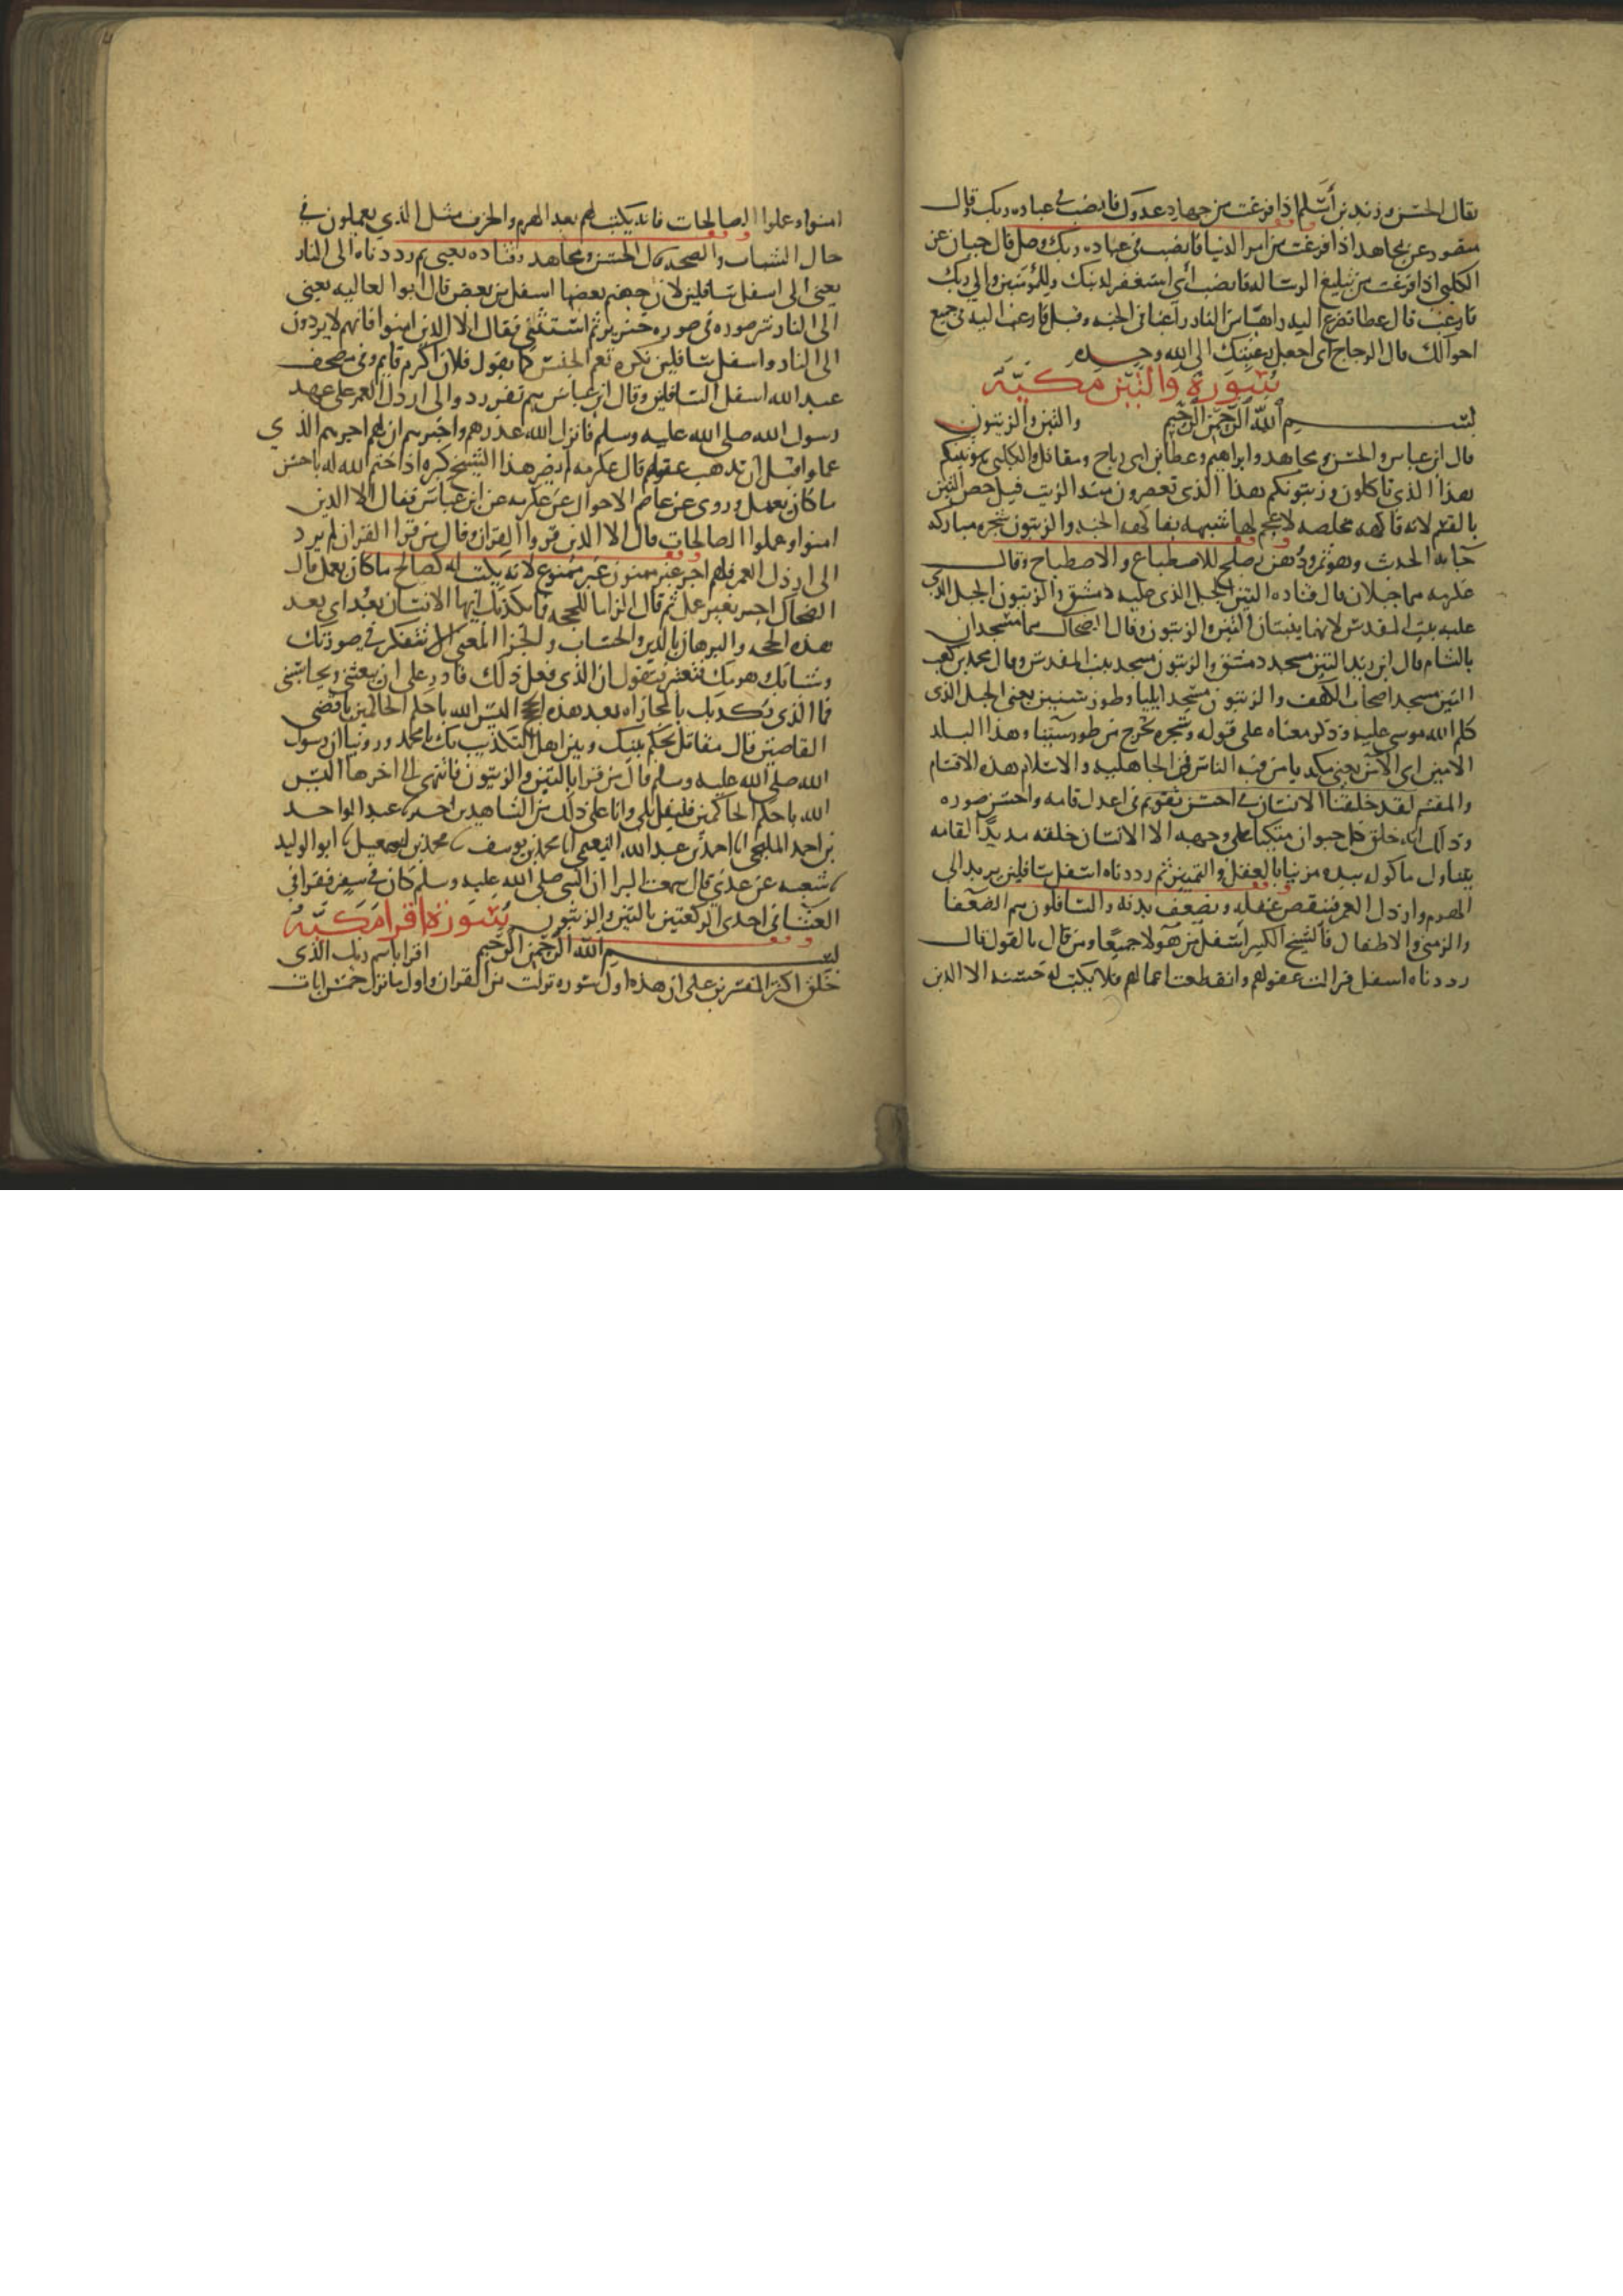 يقال الحسن وزيد بن أسلم اذا فرغت من جهاد عدوك فانصب في عباده ربك وقال
منصور عن مجاهد اذا فرغت من امر الدنيا فانصب في عباده ربك وصل قال حبان عن
الكلبي اذا فرغت من تبليغ الرساله فانصب أي استغفر لذنبك وللمؤمنين والي ربك
فارغب قال عطا تضرع اليه راهبا من النار راغبا في الجنه وقيل فارغب اليه في جميع
احوالك قال الزجاج اى اجعل رغبتك الى الله وحده
سورة والتين مكية
بسم الله الرحمن الرحيم والتين والزيتون
قال ابن عباس والحسن ومجاهد وابراهيم وعطا بن ابى رباح ومقاتل والكلبي هو تينكم
هذا الذى تاكلون وزيتونكم هذا الذى تعصرون منه الزيت قيل خص التين
بالقسم لانه فاكهه مخلصه لا عجم لها شبيهه بفاكهه الجنه والزيتون شجره مباركه
جا به الحديث وهو ثمر ودهن يصلح للاصطباغ والاصطباح وقال
عكرمه هما جبلان قال قتاده التين الجبل الذى عليه دمشق والزيتون الجبل الذى
عليه بيت المقدس لانهما ينبتان التين والزيتون وقال الضحاك هما مسجدان
بالشام قال ابن زيد التين مسجد دمشق والزيتون مسجد بيت المقدس وقال محمد بن كعب
التين مسجد اصحاب الكهف والزيتون مسجد ايليا وطور سينين يعنى الجبل الذى
كلم الله موسى عليه وذكر معناه على قوله وشجره تخرج من طور سينا وهذا البلد
الامين اى الآمن يعنى مكه يامن فيه الناس في الجاهليه والاسلام هذه الاقسام
والمقسم لقد خلقنا الانسان في احسن تقويم في اعدل قامه واحسن صوره
وذلك انه خلق كل حيوان منكبا على وجهه الا الانسان خلقه مديد القامه
يتناول ماكوله بيده مزينا بالعقل والتمييز ثم رددناه اسفل سافلين يريد الى
الهرم وارذل العمر فينقص عقله ويضعف بدنه والسافلون هم الضعفا
والزمنى والاطفال فالشيخ الكبير أسفل من هولا جميعا ومن قال بالقول قال
رددناه اسفل فزالت عقولهم وانقطعت اعمالهم فلا يكتب له حسنه الا الذين
امنوا وعملوا الصالحات فانه يكتب لهم بعد الهرم والخرف مثل الذي يعملون في
حال الشباب والصحه قال الحسن ومجاهد وقتاده يعنى ثم رددناه الى النار
يعنى الى اسفل سافلين لان جهنم بعضها اسفل من بعض قال ابوا العاليه يعنى
الى النار شر صوره في صوره خنزير ثم استثنى فقال الا الذين امنوا فانهم لا يردون
الى النار واسفل سافلين نكره تعم الجنس كما يقول فلان اكرم قايم وفي مصحف
عبد الله اسفل السافلين وقال ابن عباس هم نفر ردوا الى ارذل العمر على عهد
رسول الله صلى الله عليه وسلم فانزل الله عذرهم واخبرهم ان لهم اجرهم الذي
عملوا قبل ان تذهب عقولهم قال عكرمه لم يضر هذا الشيخ كبره اذا ختم الله له باحسن
ما كان يعمل وروى عن عاصم الاحوال عن عكرمه عن ابن عباس فقال الا الذين
امنوا وعملوا الصالحات قال الا الذين قروا القران وقال من قرا القران لم يرد
الى ارذل العمر فلهم اجر غير ممنون غير ممنوع لانه يكتب له كصالح ما كان يعمل قال
الضحاك اجر بغير عمل ثم قال الزاما للحجه فما يكذبك ايها الانسان بعد اى بعد
هذه الحجه والبرهان بالدين والحساب والجزا المعنى الا تتفكر في صورتك
وشبابك هرمك فتعتبر فتقول ان الذى فعل ذلك قادر على ان يبعثنى ويحاسبنى
فما الذى يكذبك بالمجازاه بعد هذه الحجج اليس الله باحكم الحاكمين باقضى
القاضين قال مقاتل يحكم بينك وبين اهل التكذيب بك يا محمد وروينا ان رسول
الله صلى الله عليه وسلم قال من قرا بالتين والزيتون فانتهى الى اخرها اليس
الله باحكم الحاكمين فليقل بلى وانا على ذلك من الشاهدين عبد الواحد
بن احمد المليحى انا احمد بن عبد الله النعيمى انا محمد بن يوسف محمد بن اسمعيل ابو الوليد
شعبه عن عدى قال سمعت البرا ان النبي صلى الله عليه وسلم كان في سفر فقرا في
العشا في احدى الركعتين بالتين والزيتون سورة اقرا مكية
بسم الله الرحمن الرحيم اقرا باسم ربك الذى
خلق اكثر المفسرين على ان هذه اول سوره نزلت من القران واول ما نزل خمس ايات